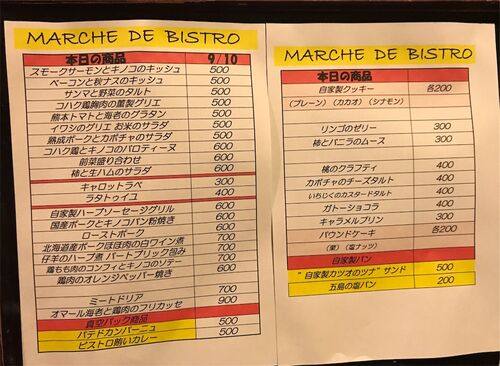 MARCHE DE BISTRO
本日の商品 9/10
スモークサーモンとキノコのキッシュ 500
ベーコンと秋ナスのキッシュ 500
サンマと野菜のタルト 500
コハク鶏胸肉の薫製グリエ 500
熊本トマトと海老のグラタン 500
イワシのグリエ お米のサラダ 500
熟成ポークとカボチャのサラダ 500
コハク鶏とキノコのバロティーヌ 600
前菜盛り合わせ 600
柿と生ハムのサラダ 600
キャロットラペ 300
ラタトゥイユ 400
自家製ハーブソーセージグリル 600
国産ポークとキノコパン粉焼き 600
ローストポーク 600
北海道産ポークほほ肉の白ワイン煮 700
仔羊のハーブ煮 パートブリック包み 700
鶏もも肉のコンフィとキノコのソテー 600
鶏肉のオレンジペッパー焼き
700
ミートドリア 900
オマール海老と鶏肉のフリカッセ
真空パック商品 500
パテドカンパーニュ 500
ビストロ賄いカレー 500
MARCHE DE BISTRO
本日の商品
自家製クッキー 各200
(プレーン) (カカオ) (シナモン)
リンゴのゼリー 300
柿とバニラのムース 300
桃のクラフティ 400
カボチャのチーズタルト 400
いちじくのカスタードタルト 400
ガトーショコラ 400
キャラメルプリン 300
パウンドケーキ 各200
(栗) (塩ナッツ)
自家製パン
"自家製カツオのツナ" サンド 500
五島の塩パン 200